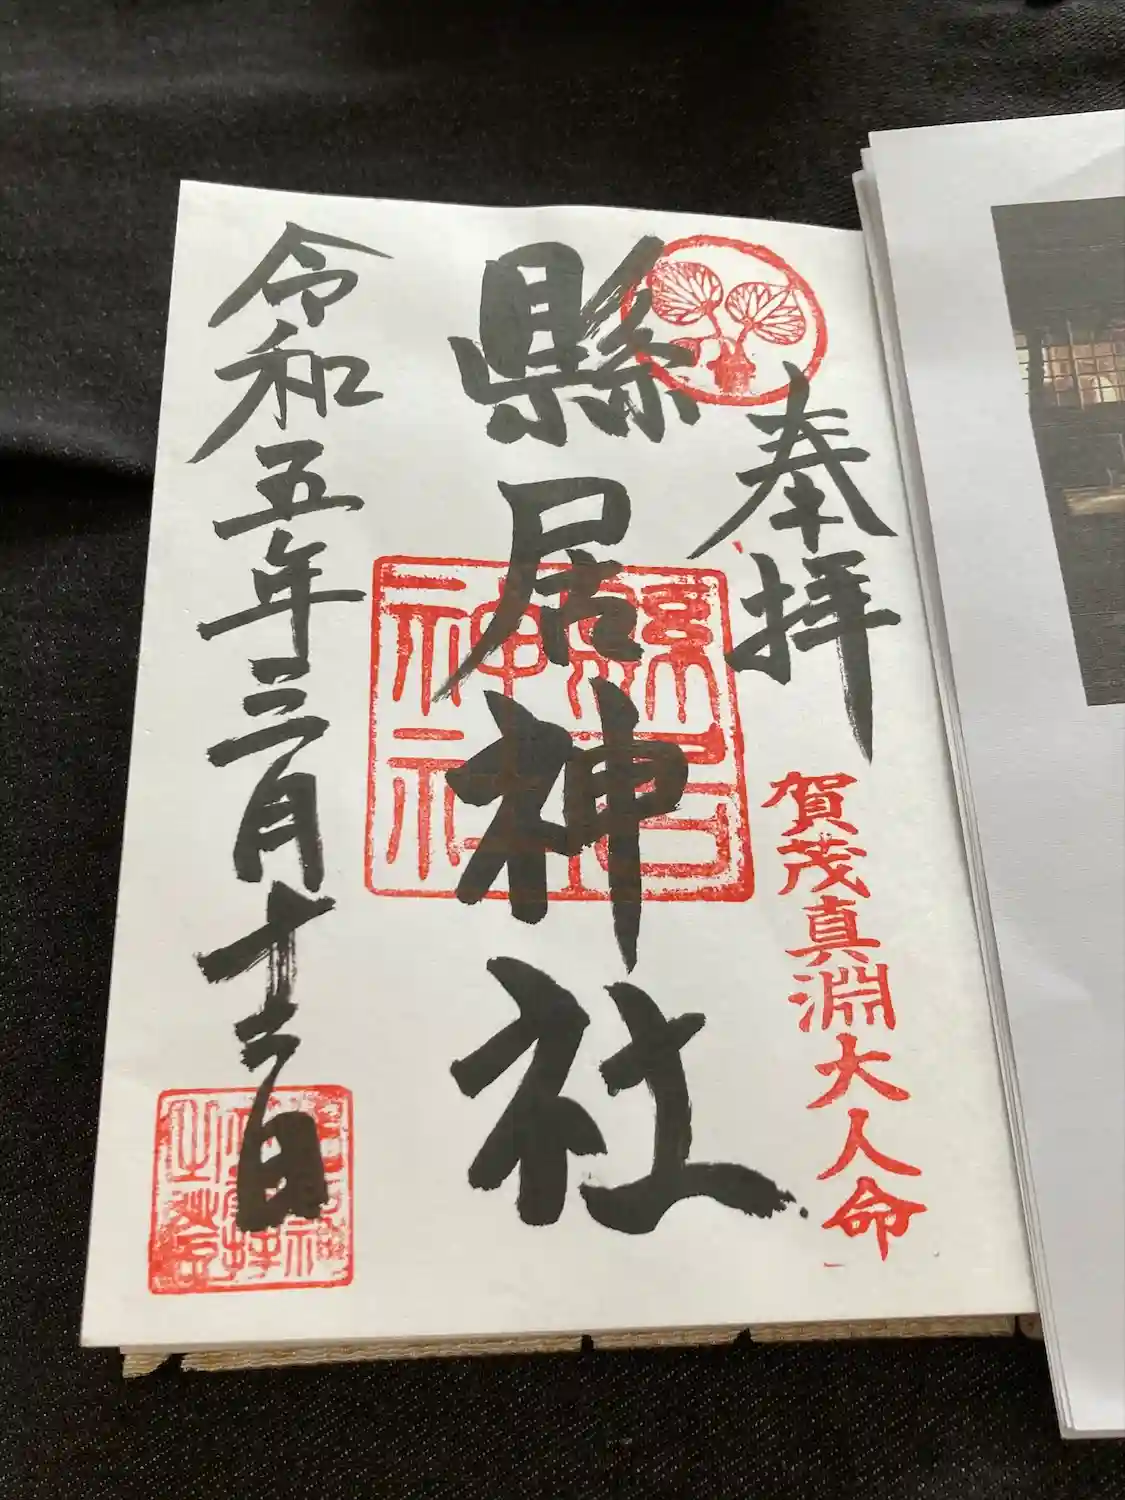 奉拝
賀茂真淵大人命
縣居神社
縣居
神社
令和五年三月十三日